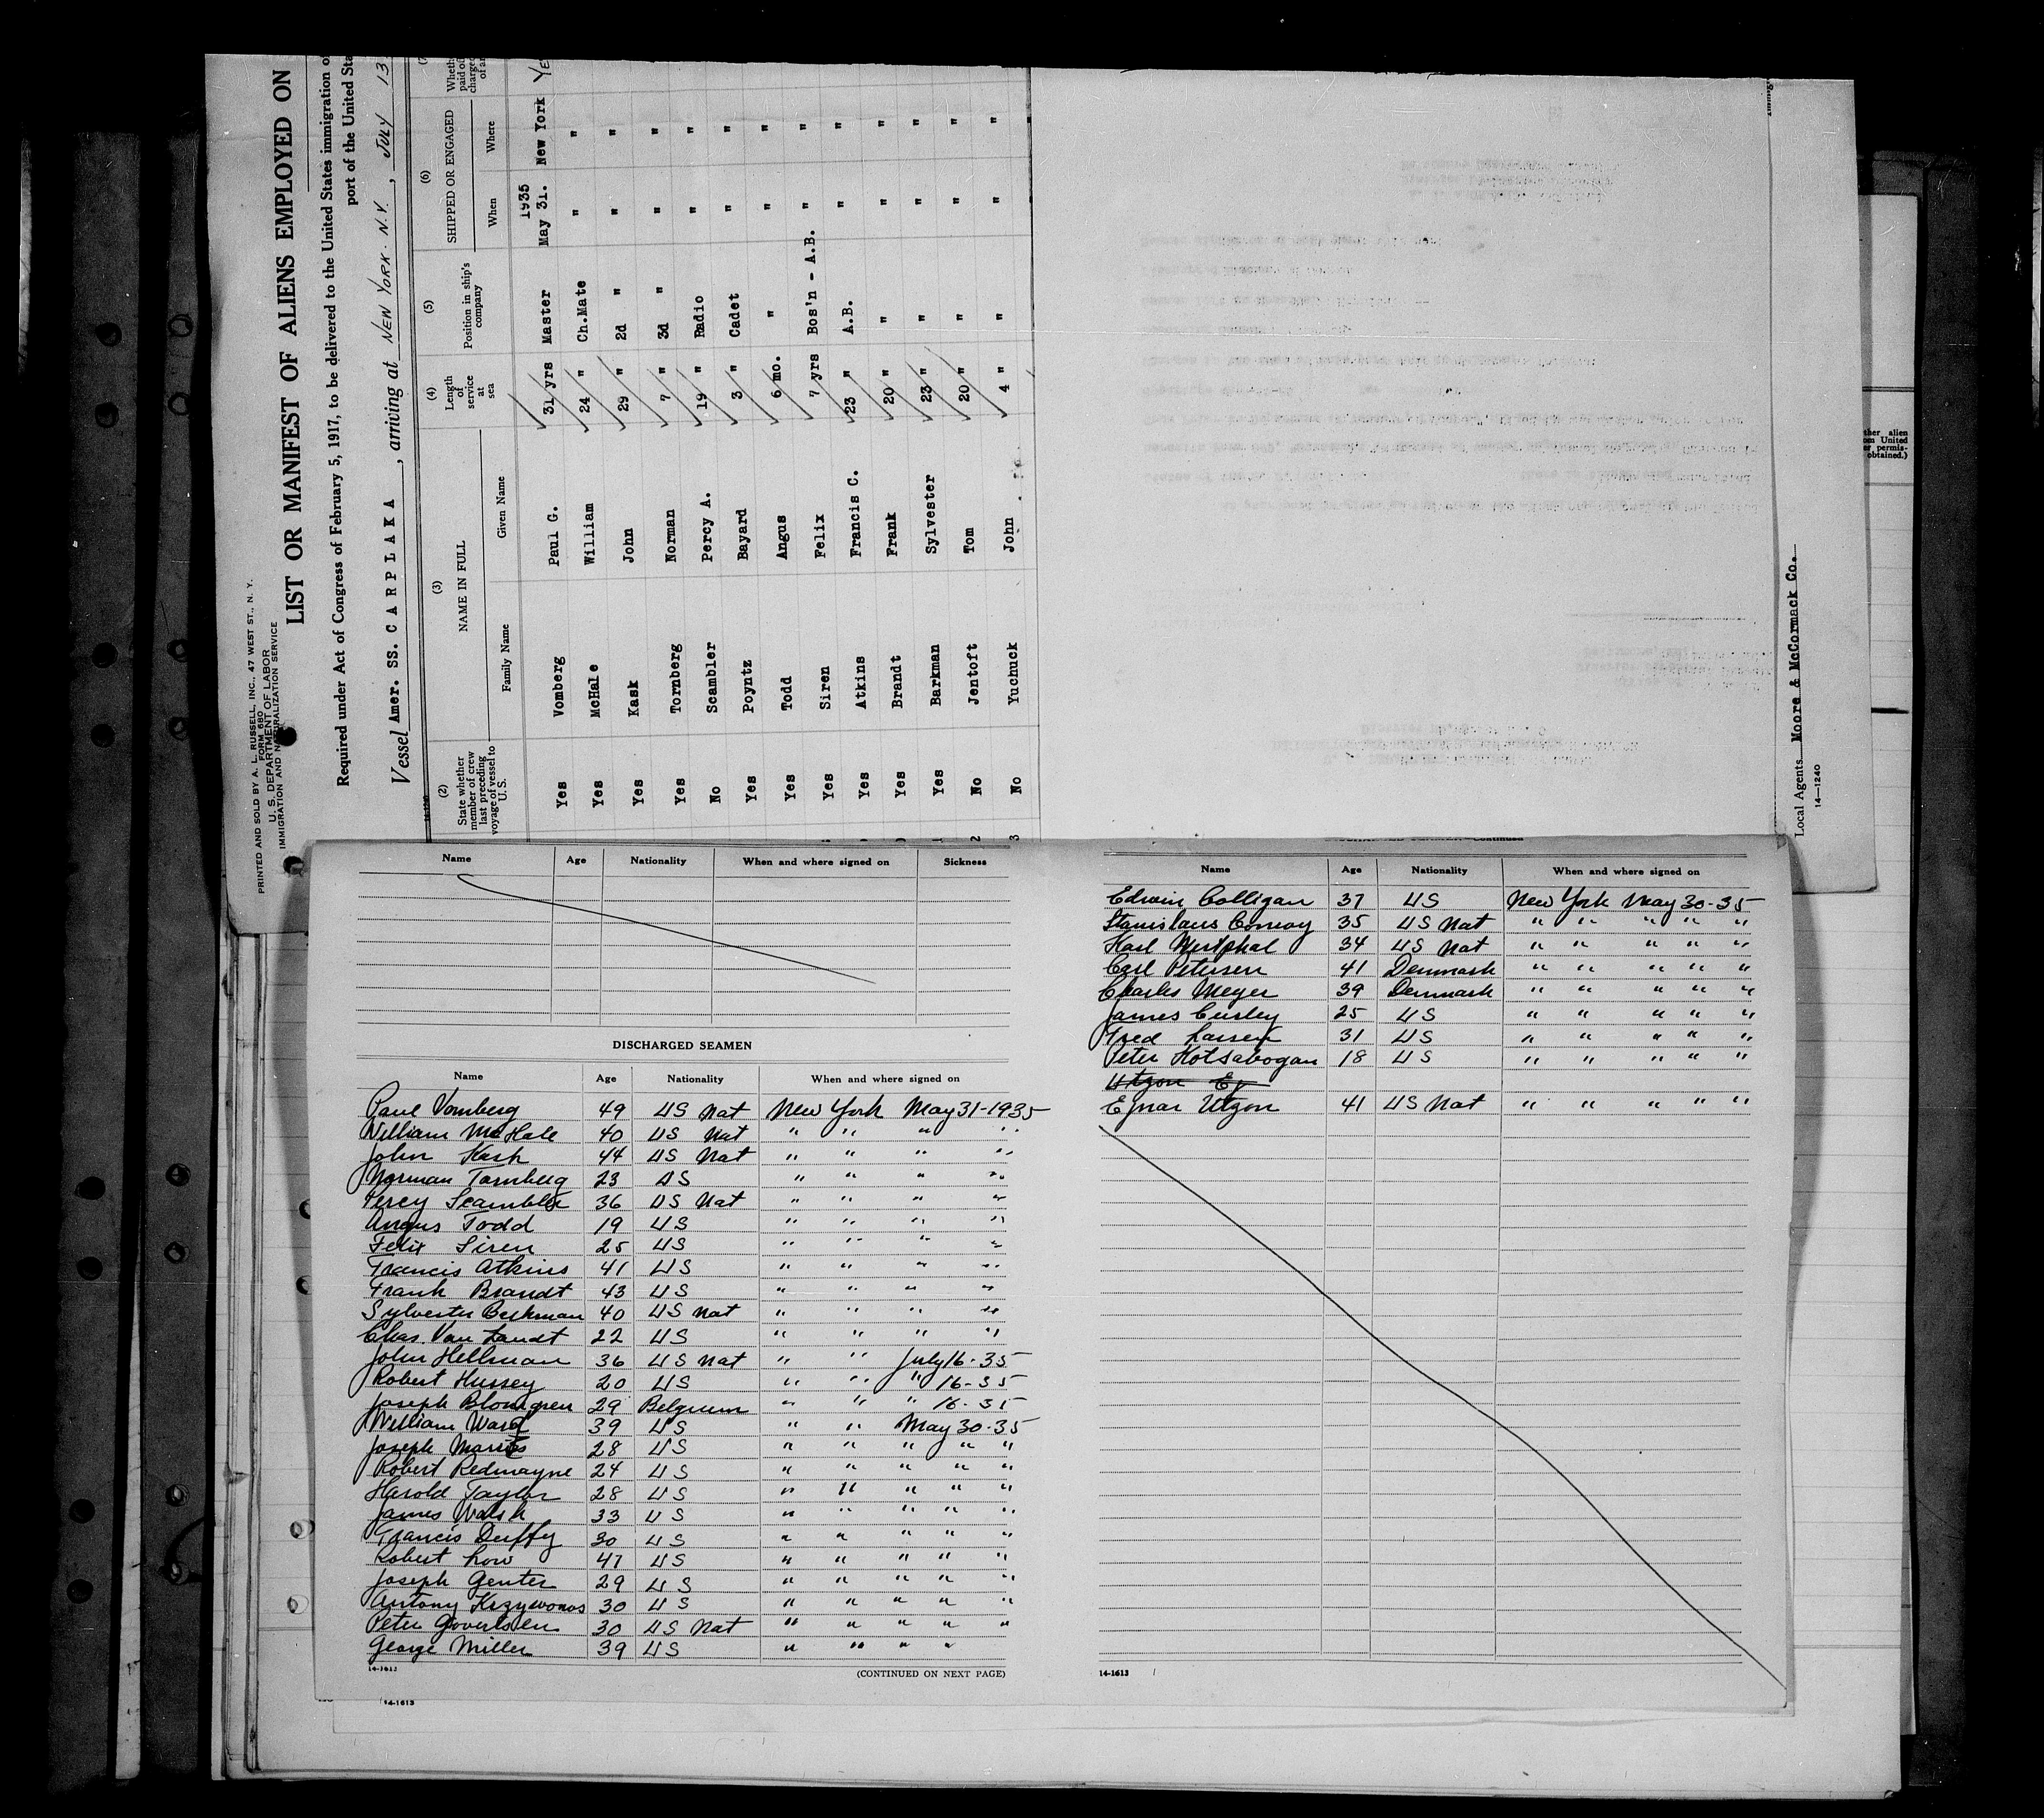 PRINTED AND SOLD BY A. L. RUSSELL, INC., 47 WEST ST., N. Y.
FORM 680
U. S. DEPARTMENT OF LABOR
IMMIGRATION AND NATURALIZATION SERVICE
LIST OR MANIFEST OF ALIENS EMPLOYED ON
Required under Act of Congress of February 5, 1917, to be delivered to the United States immigration
port of the United
Vessel Amer. SS. CARPLAKA, arriving at NEW YORK. N.Y., JULY 13
(2) State whether member of crew last preceding voyage of vessel to U.S.
(3) NAME IN FULL
Family Name Given Name
(4) Length of service at sea
(5) Position in ship's company
(6) SHIPPED OR ENGAGED
When Where
1935
Yes Vomberg Paul G. 31 yrs Master May 31. New York
Yes McHale William 24 " Ch.Mate " "
Yes Kask John 29 " 2d " " "
Yes Tornberg Norman 7 " 3d " " "
No Scambler Percy A. 19 " Radio " "
Yes Poyntz Bayard 3 " Cadet " "
Yes Todd Angus 6 mo. " " "
Yes Siren Felix 7 yrs Bos'n - A.B. " "
Yes Atkins Francis C. 23 " A.B. " "
Yes Brandt Frank 20 " " " "
Yes Barkman Sylvester 23 " " " "
2 No Jentoft Tom 20 " " " "
3 No Yuchuck John 4 " " " "
ther alien
om United
er permis-
obtained.)
Local Agents Moore & McCormack Co.
14—1240
Name Age Nationality When and where signed on Sickness
DISCHARGED SEAMEN
Name Age Nationality When and where signed on
Paul Vomberg 49 US Nat New York May 31-1935
William McHale 40 US Nat " " " "
John Kask 44 US Nat " " " "
Norman Tornberg 23 US " " " "
Percy Scambler 36 US Nat " " " "
Angus Todd 19 US " " " "
Felix Siren 25 US " " " "
Francis Atkins 41 US " " " "
Frank Brandt 43 US " " " "
Sylvester Barkman 40 US Nat " " " "
Chas. Van Zandt 22 US " " " "
John Hellman 36 US Nat " " July 16-35
Robert Hussey 20 US " " " 16-35
Joseph Blomgren 29 Belgium " " " 16-35
William Ward 39 US " " May 30-35
Joseph 28 US " " " " "
Robert Redmayne 24 US " " " " "
Harold Taylor 28 US " " " " "
James Walsh 33 US " " " " "
Francis Duffy 30 US " " " " "
Robert Low 47 US " " " " "
Joseph Genter 29 US " " " " "
Antony Krzywonos 30 US " " " " "
Peter Govertsen 30 US Nat " " " " "
George Miller 39 US " " " "
14-1613
(CONTINUED ON NEXT PAGE)
14-1613
Name Age Nationality When and where signed on
Edwin Colligan 37 US New York May 30-35
Stanislaus Conway 35 US Nat " " " " "
Karl Westphal 34 US Nat " " " " "
Carl Petersen 41 Denmark " " " " "
Charles Meyer 39 Denmark " " " " "
James Curley 25 US " " " " "
Fred Larsen 31 US " " " " "
Peter Hotsabogan 18 US " " " " "
Utzon Ej
Ejnar Utzon 41 US Nat " " " " "
14-1613